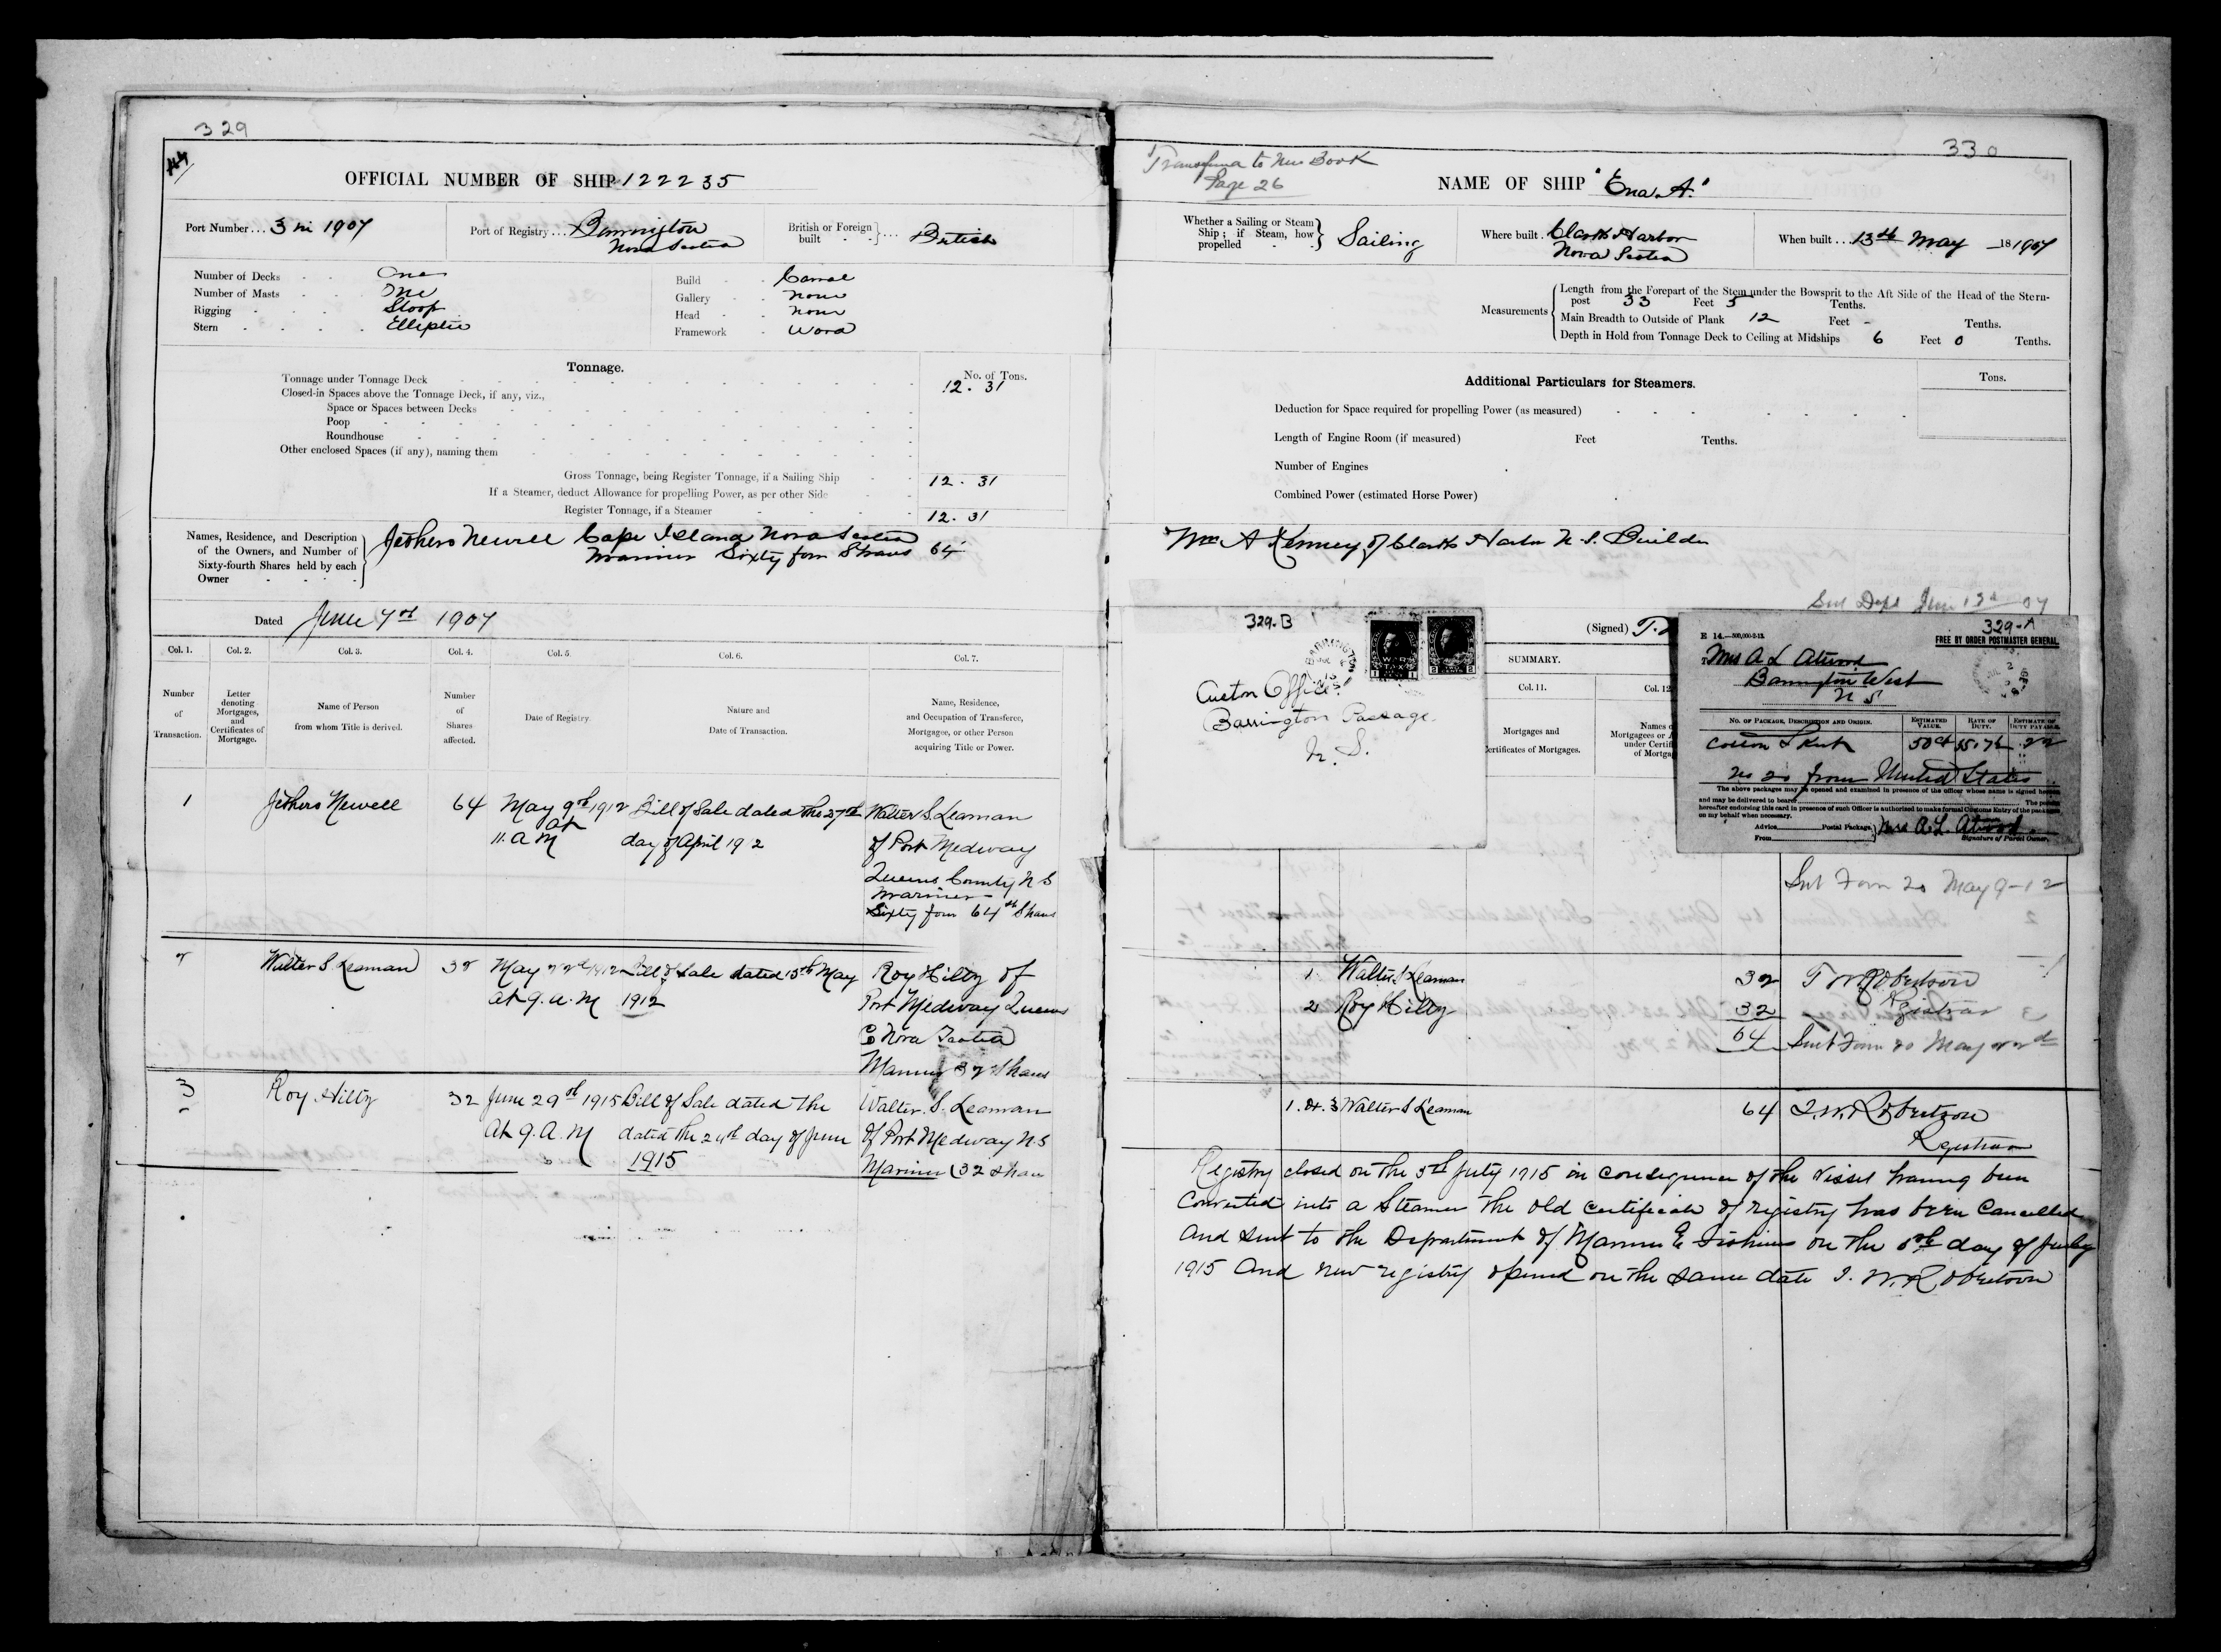 329
OFFICIAL NUMBER OF SHIP 122235
Port Number ... 3 in 1907
Port of Registry ... Barrington
Nova Scotia
British or Foreign built } ... British
Number of Decks One
Number of Masts One
Rigging Sloop
Stern Elliptic
Build Carvel
Gallery None
Head None
Framework Wood
Tonnage.
No. of Tons.
Tonnage under Tonnage Deck 12. 31
Closed-in Spaces above the Tonnage Deck, if any, viz.,
Space or Spaces between Decks
Poop
Roundhouse
Other enclosed Spaces (if any), naming them
Gross Tonnage, being Register Tonnage, if a Sailing Ship 12. 31
If a Steamer, deduct Allowance for propelling Power, as per other Side
Register Tonnage, if a Steamer 12. 31
Names, Residence, and Description
of the Owners, and Number of
Sixty-fourth Shares held by each
Owner
Jethero Newell Cape Island Nova Scotia
Mariner Sixty four Shares 64
Dated June 7th 1907
Col. 1. Col. 2. Col. 3. Col. 4. Col. 5. Col. 6. Col. 7.
Number of Transaction.
Letter denoting Mortgages, and Certificates of Mortgage.
Name of Person from whom Title is derived.
Number of Shares affected.
Date of Registry.
Nature and Date of Transaction.
Name, Residence, and Occupation of Transferee, Mortgagee, or other Person acquiring Title or Power.
1 Jethero Newell 64 May 9th 1912 Bill of Sale dated the 27th Walter S. Leaman
at 11. A M day of April 19 2 of Port Medway
Queens County N S
Mariner
Sixty four 64th Shares
2 Walter S. Leaman 32 May 22nd 1912 Bill of Sale dated 15th May Roy Hilty of
at 9. a. M 1912 Port Medway Queens
Co Nova Scotia
Mariner 32 Shares
3 Roy Hilty 32 June 29th 1915 Bill of Sale dated The Walter. S. Leaman
At 9. A. M dated the 24th day of June of Port Medway N.S
1915 Mariner (32 Shares
330
Transfered to New Book
Page 26
NAME OF SHIP "Ena A."
Whether a Sailing or Steam
Ship; if Steam, how
propelled } Sailing
Where built Clarks Harbor
Nova Scotia
When built ... 13th May 181907
Measurements
Length from the Forepart of the Stem under the Bowsprit to the Aft Side of the Head of the Stern-
post 33 Feet 5 Tenths.
Main Breadth to Outside of Plank 12 Feet - Tenths.
Depth in Hold from Tonnage Deck to Ceiling at Midships 6 Feet 0 Tenths.
Additional Particulars for Steamers.
Tons.
Deduction for Space required for propelling Power (as measured)
Length of Engine Room (if measured) Feet Tenths.
Number of Engines
Combined Power (estimated Horse Power)
Wm A Kenney of Clarks Harbor N.S. Builder
Sent Dept June 13 07
329-B
Custon Office.
Barrington Passage.
N. S.
(Signed) T.
SUMMARY.
Col. 11. Col. 12
Mortgages and
Certificates of Mortgages.
329-A
E 14.—500,000-2-13.
FREE BY ORDER POSTMASTER GENERAL.
To Mrs A L Atwood
Barrington West
N S
NO. OF PACKAGE, DESCRIPTION AND ORIGIN. ESTIMATED VALUE. RATE OF DUTY. ESTIMATE OF DUTY PAYABLE
Cotton Skirt 50ct
No 20 from United States
The above packages may be opened and examined in presence of the officer whose name is signed
and may be delivered to bearer
hereafter endorsing this card in presence of such Officer is authorized to make formal Customs Entry of the packages
on my behalf when necessary.
Advice Postal Package
From
Mrs A. L. Atwood
Signature of Parcel Owner.
Sent Form 20 May 9-12
1. Walter S Leaman 32 T W Robertson
2 Roy Hilty 32 Registrar
64 Sent Form 20 May 22nd
1. & 3 Walter S Leaman 64 T. W. Robertson
Registrar
Registry closed on the 5th July 1915 in consequence of the Vessel having been
Converted into a Steamer the old certificate of registry has been Cancelled
And sent to the Department of Marine & Fisheries on the day of July
1915 And new registry opened on the same date T. W. Robertson